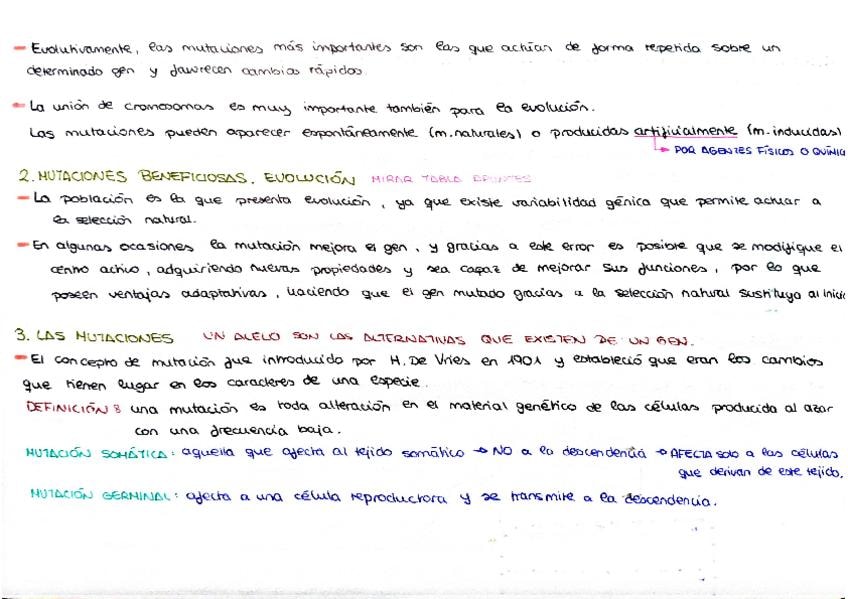 - Evolutivamente, las mutaciones más importantes son las que actúan de forma repetida sobre un
determinado gen y favorecen cambios rápidos.
- La unión de cromosomas es muy importante también para la evolución.
Las mutaciones pueden aparecer espontáneamente (m.naturales) o producidas artificialmente (m.inducidas)
↳ POR AGENTES FÍSICOS O QUÍMIC
2. MUTACIONES BENEFICIOSAS. EVOLUCIÓN MIRAR TABLA APUNTES
- La población es la que presenta evolución, ya que existe variabilidad génica que permite actuar a
la selección natural.
- En algunas ocasiones la mutación mejora el gen, y gracias a este error es posible que se modifique el
centro activo, adquiriendo nuevas propiedades y sea capaz de mejorar sus funciones, por lo que
poseen ventajas adaptativas, haciendo que el gen mutado gracias a la selección natural sustituya al inicia
3. LAS MUTACIONES UN ALELO SON LAS ALTERNATIVAS QUE EXISTEN DE UN GEN.
- El concepto de mutación fue introducido por H. De Vries en 1901 y estableció que eran los cambios
que tienen lugar en los caracteres de una especie.
DEFINICIÓN: una mutación es toda alteración en el material genético de las células producida al azar
con una frecuencia baja.
MUTACIÓN SOMÁTICA: aquella que afecta al tejido somático → NO a la descendencia → AFECTA solo a las células
que derivan de este tejido.
MUTACIÓN GERMINAL: afecta a una célula reproductora y se transmite a la descendencia.